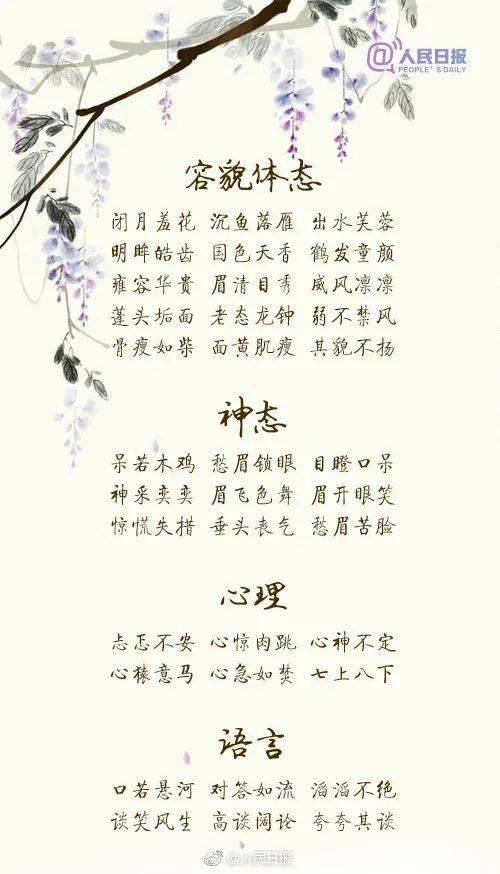 @人民日报
PEOPLE'S DAILY
容貌体态
闭月羞花 沉鱼落雁 出水芙蓉
明眸皓齿 国色天香 鹤发童颜
雍容华贵 眉清目秀 威风凛凛
蓬头垢面 老态龙钟 弱不禁风
骨瘦如柴 面黄肌瘦 其貌不扬
神态
呆若木鸡 愁眉锁眼 目瞪口呆
神采奕奕 眉飞色舞 眉开眼笑
惊慌失措 垂头丧气 愁眉苦脸
心理
忐忑不安 心惊肉跳 心神不定
心猿意马 心急如焚 七上八下
语言
口若悬河 对答如流 滔滔不绝
谈笑风生 高谈阔论 夸夸其谈
@人民日报